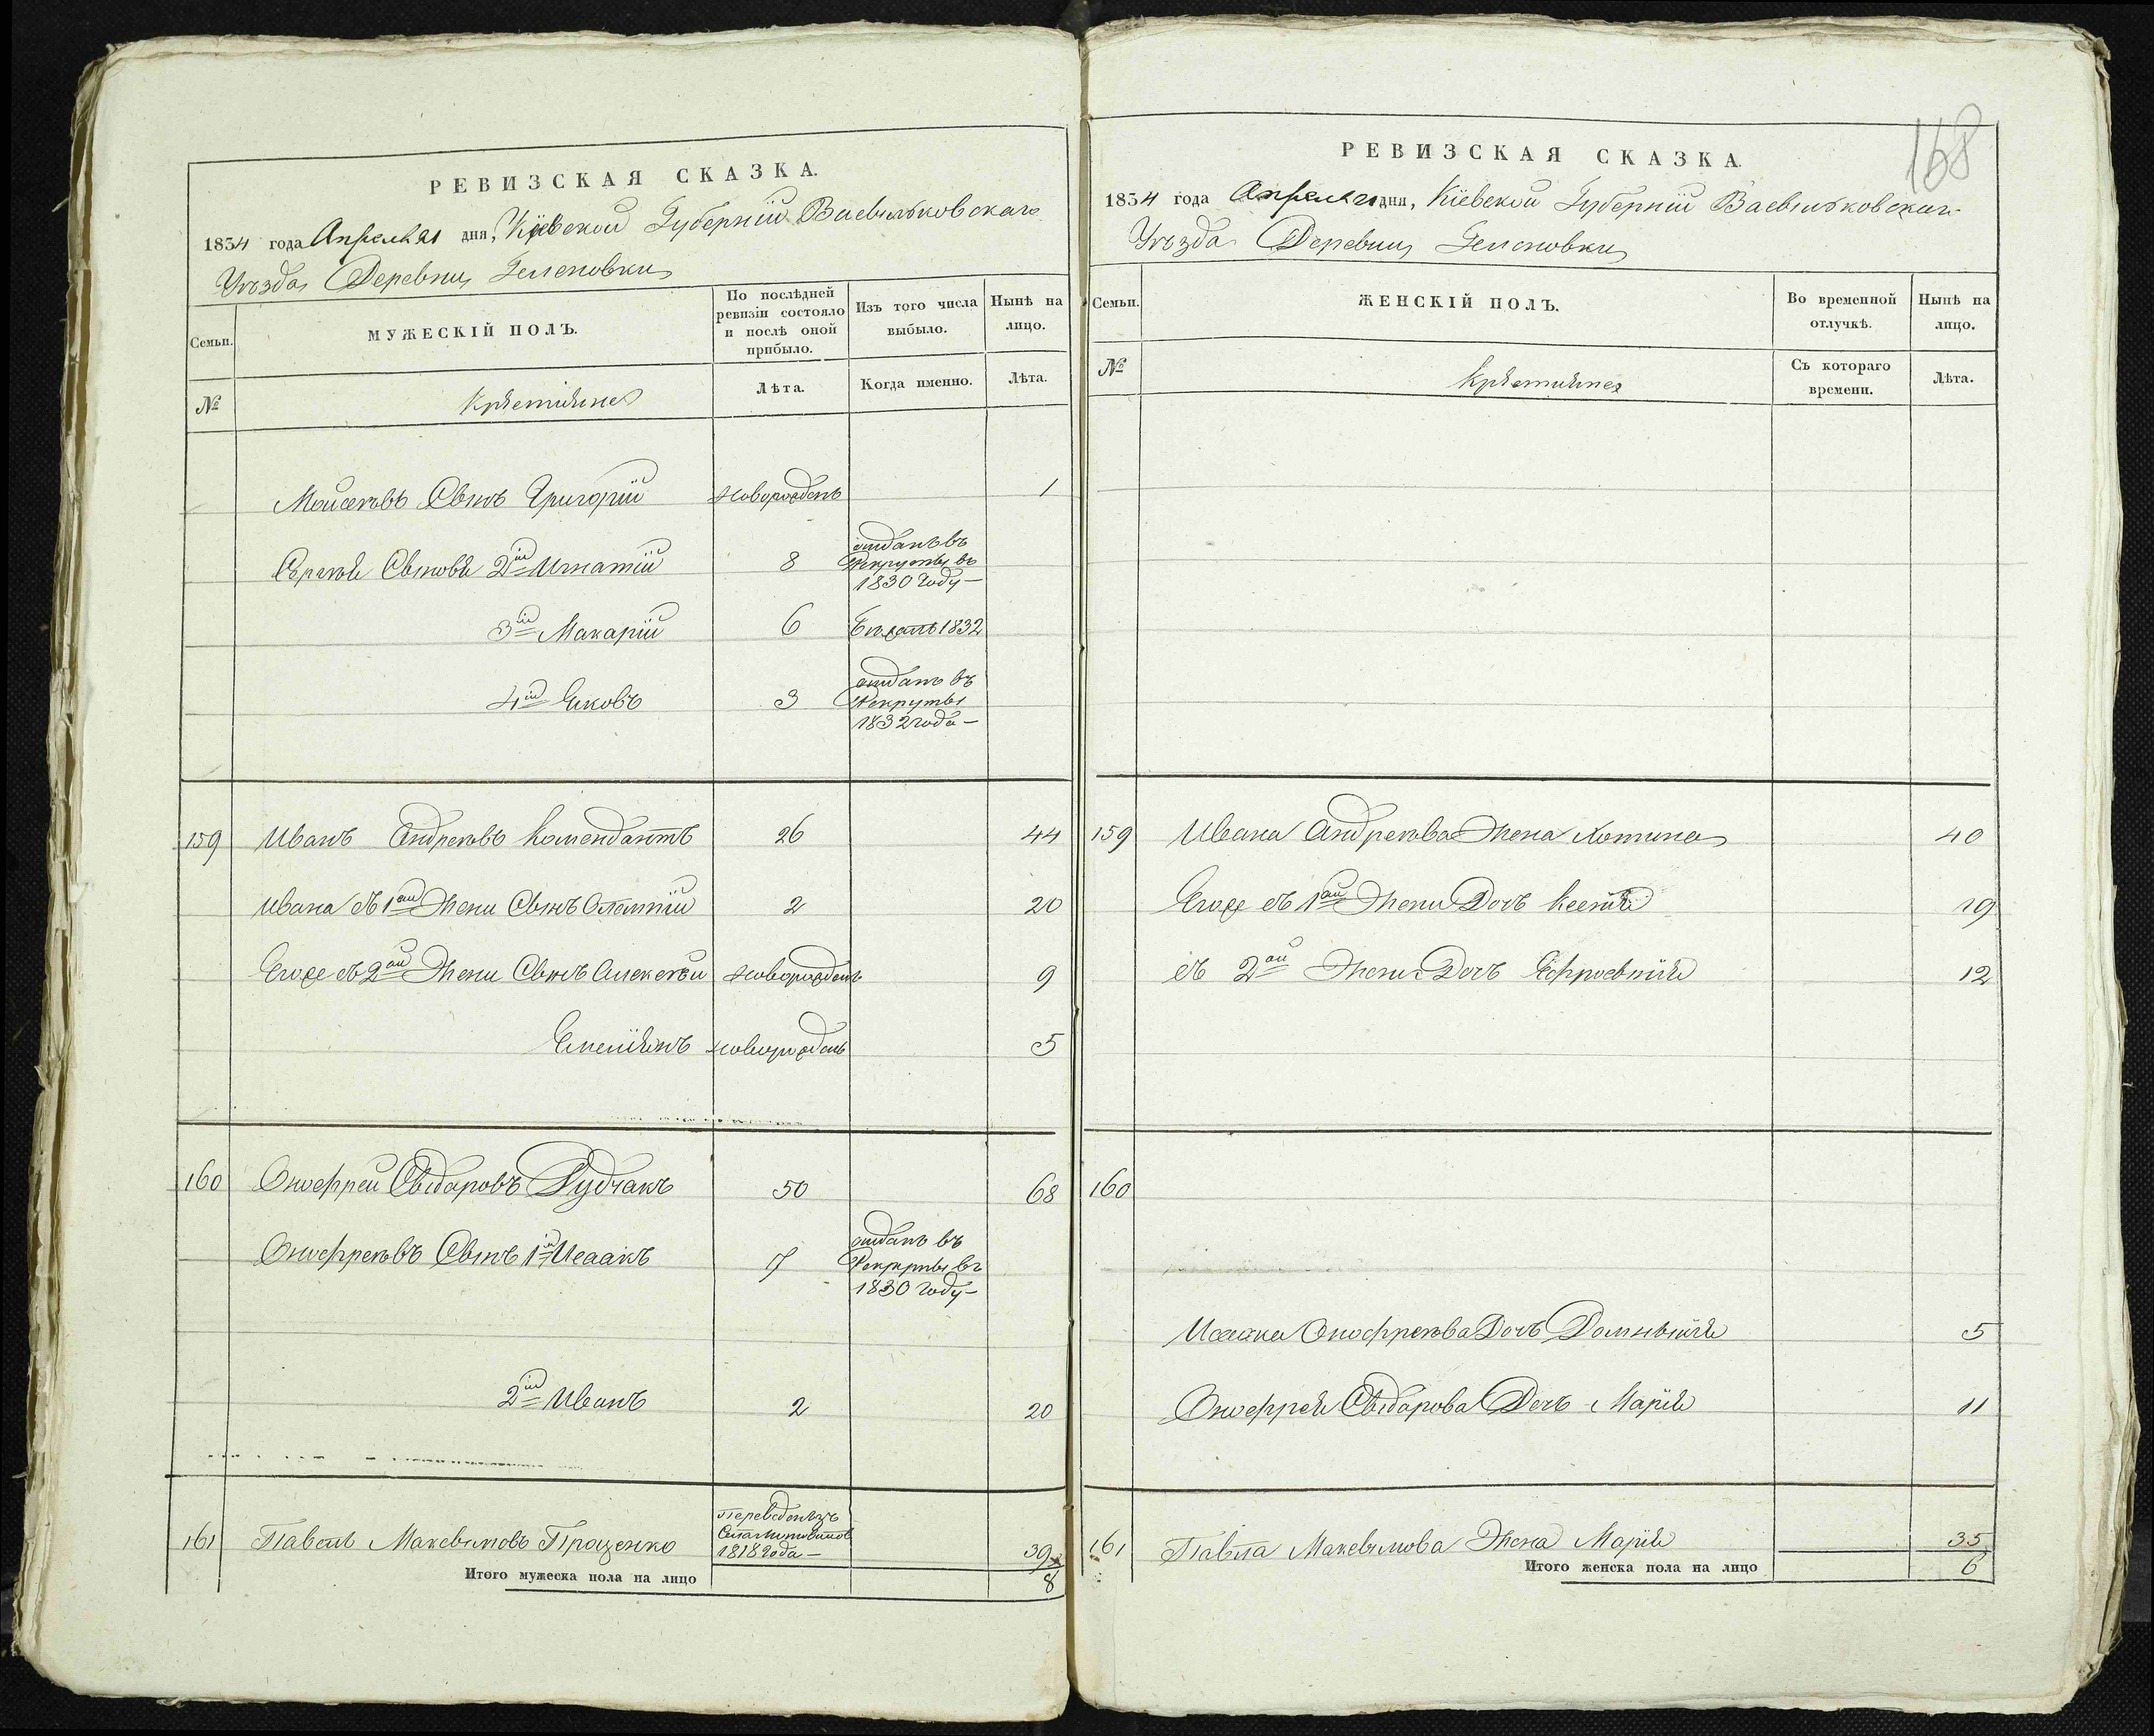 РЕВИЗСКАЯ СКАЗКА.
1834 года Апреля 21 дня, Кіевской Губерніи Васильковскаго
Уѣзда Деревни
Семьи.
МУЖЕСКІЙ ПОЛЪ.
По послѣдней ревизіи состояло и послѣ оной прибыло.
Изъ того числа выбыло.
Нынѣ на лицо.
№
Крестяне
Лѣта.
Когда именно.
Лѣта.
Моисеевъ Сынъ Григорій новорожденъ 1
Сынови 2й Игнатій 8 отданъ въ Рекруты въ 1830 году
3й Макарій 6 1832
4й Яковъ 3 отданъ въ Рекруты 1832 года
159 Иванъ Андреевъ Комендантъ 26 44
Ивана съ 1ой Жени Сынъ 2 20
Его же съ 2ой Жени Сынъ Алексѣй новорожденъ 9
Емеліянъ новорожденъ 5
160 Онофрей Свидаровъ Рудчакъ 50 68
Онофреевъ Сынъ 1й Исаакъ 7 отданъ въ Рекруты въ 1830 году
2й Иванъ 2 20
161 Павелъ Максимовъ Проценко Переведенъ изъ 1818 года 39
Итого мужеска пола на лицо 8
РЕВИЗСКАЯ СКАЗКА.
168
1834 года Апреля 21 дня, Кіевской Губерніи Васильковскаго
Уѣзда Деревни
Семьи.
ЖЕНСКІЙ ПОЛЪ.
Во временной отлучкѣ.
Нынѣ на лицо.
№
Крестяне
Съ котораго времени.
Лѣта.
159 Ивана Андреева Жена 40
Его же съ 1ой Жени Дочь Ксенія 19
съ 2ой Жени Дочь Ефросинія 12
160
Исаака Онофреева Дочь Домникія 5
Онофрея Свидарова Дочь Марія 11
161 Павла Максимова Жена Марія 35
Итого женска пола на лицо 6